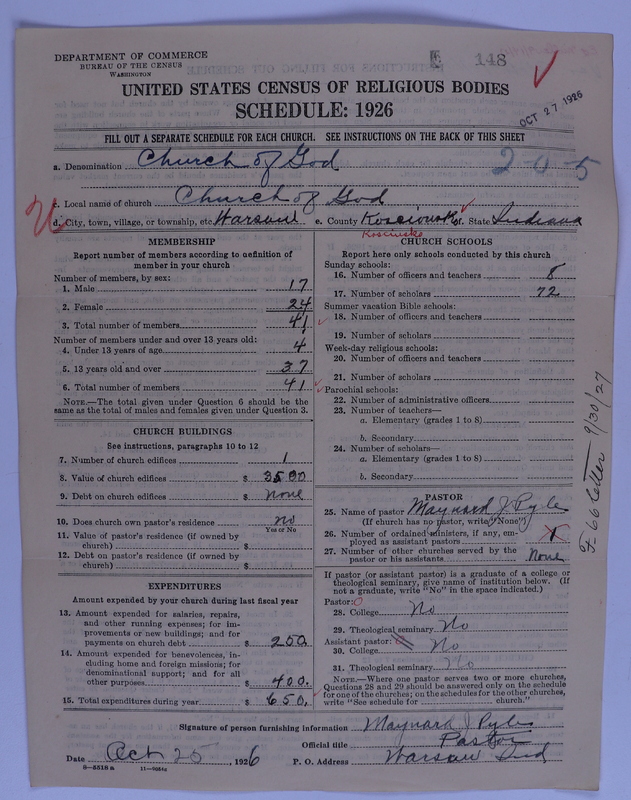 DEPARTMENT OF COMMERCE
BUREAU OF THE CENSUS
WASHINGTON
148
UNITED STATES CENSUS OF RELIGIOUS BODIES
SCHEDULE: 1926
OCT 27 1926
FILL OUT A SEPARATE SCHEDULE FOR EACH CHURCH. SEE INSTRUCTIONS ON THE BACK OF THIS SHEET
a. Denomination Church of God
2-0-5
c. Local name of church Church of God
d. City, town, village, or township, etc. Warsaw e. County Kosciousk f. State Indiana
Kosciusko
MEMBERSHIP
Report number of members according to definition of
member in your church
Number of members, by sex:
1. Male 17
2. Female 24
3. Total number of members 41
Number of members under and over 13 years old:
4. Under 13 years of age 4
5. 13 years old and over 37
6. Total number of members 41
NOTE.—The total given under Question 6 should be
same as the total of males and females given under Question 3.
CHURCH BUILDINGS
See instructions, paragraphs 10 to 12
7. Number of church edifices 1
8. Value of church edifices $ 3500
9. Debt on church edifices $ none
10. Does church own pastor's residence no
Yes or No
11. Value of pastor's residence (if owned by
church) $
12. Debt on pastor's residence (if owned by
church) $
EXPENDITURES
Amount expended by your church during last fiscal year
13. Amount expended for salaries, repairs,
and other running expenses; for im-
provements or new buildings; and for
payments on church debt $ 250.
14. Amount expended for benevolences, in-
cluding home and foreign missions; for
denominational support; and for all
other purposes $ 400.
15. Total expenditures during year $ 650.
CHURCH SCHOOLS
Report here only schools conducted by this church
Sunday schools:
16. Number of officers and teachers 8
17. Number of scholars 72
Summer vacation Bible schools:
18. Number of officers and teachers
19. Number of scholars
Week-day religious schools:
20. Number of officers and teachers
21. Number of scholars
Parochial schools:
22. Number of administrative officers
23. Number of teachers—
a. Elementary (grades 1 to 8)
b. Secondary
24. Number of scholars—
a. Elementary (grades 1 to 8)
b. Secondary
PASTOR
25. Name of pastor Maynard J. Pyle
(If church has no pastor, write "None")
26. Number of ordained ministers, if any, em-
ployed as assistant pastors 1
27. Number of other churches served by the
pastor or his assistants None
If pastor (or assistant pastor) is a graduate of a college or
theological seminary, give name of institution below. (If
not a graduate, write "No" in the space indicated.)
Pastor:
28. College No
29. Theological seminary No
Assistant pastor:
30. College No
31. Theological seminary No
NOTE.—Where one pastor serves two or more churches,
Questions 28 and 29 should be answered only on the schedule
for one of the churches; on the schedules for the other churches,
write "See schedule for church."
F-66 letter - 9/30/27
Signature of person furnishing information Maynard J Pyle
Official title Pastor
Date Oct 25, 1926 P. O. Address Warsaw Ind
8—5518 a